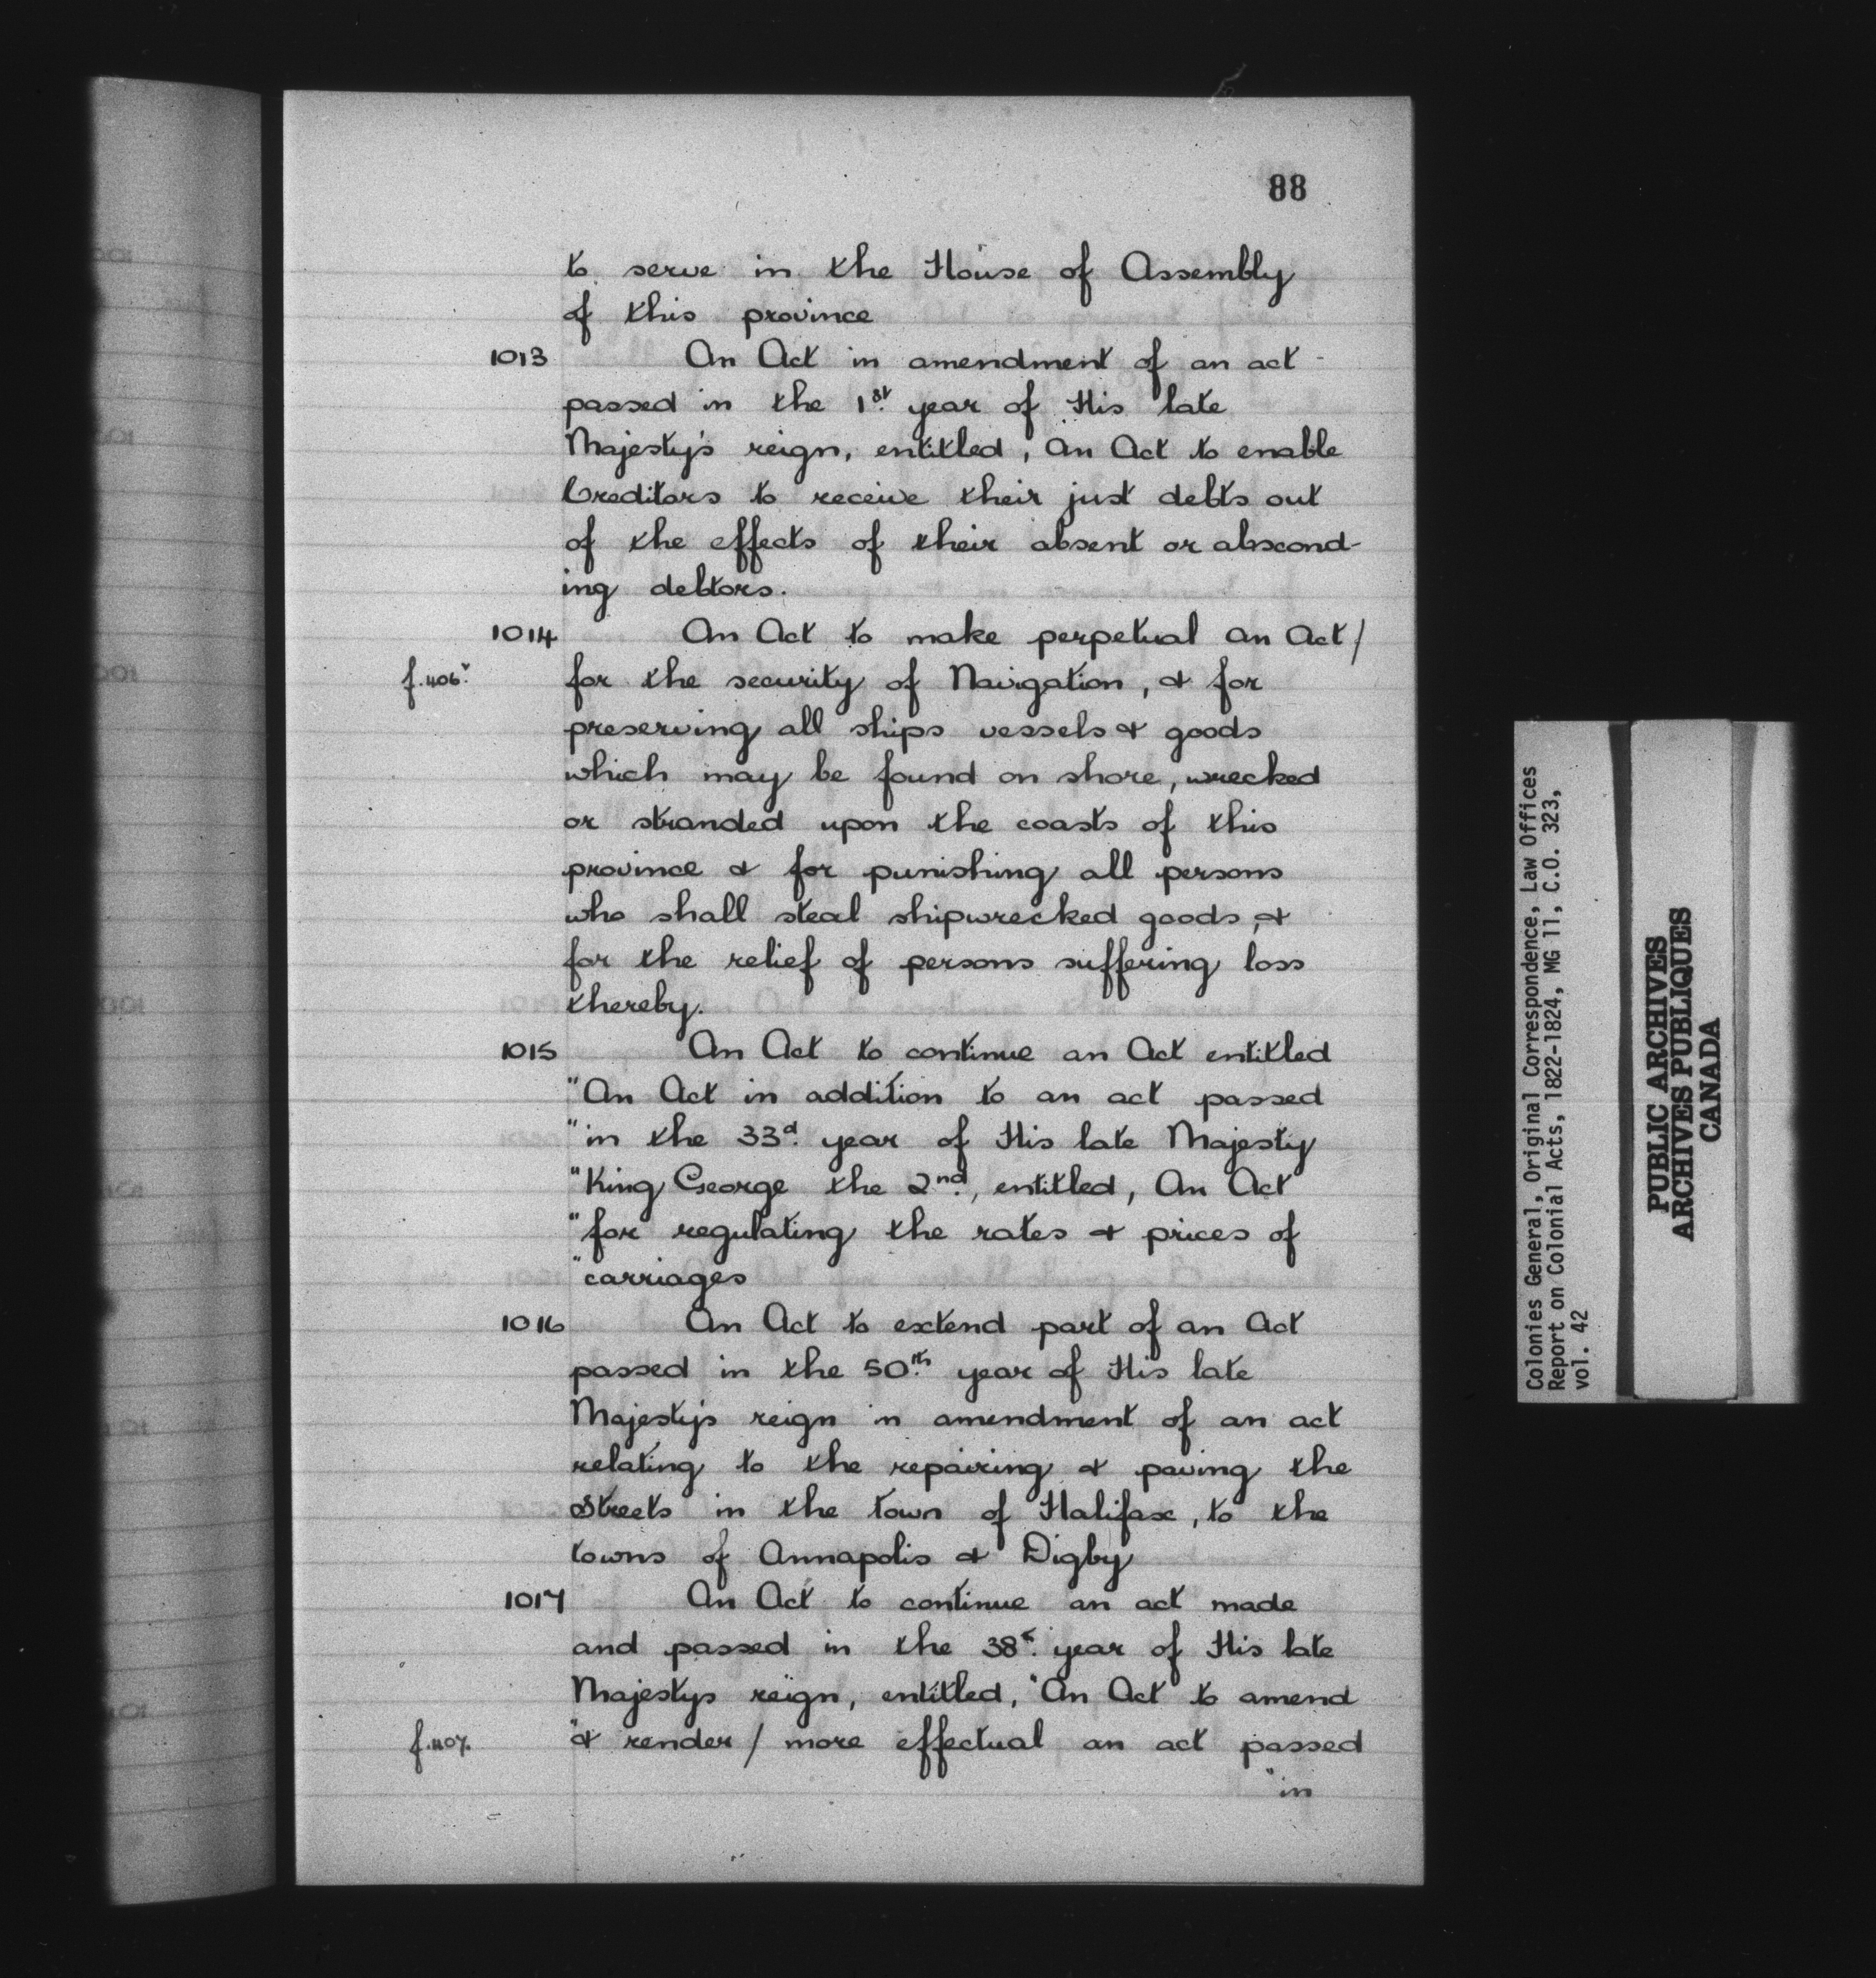 88
to serve in the House of Assembly
of this province
1013 An Act in amendment of an act
passed in the 1st. year of His late
Majesty's reign, entitled, An Act to enable
Creditors to receive their just debts out
of the effects of their absent or abscond-
ing debtors.
1014 An Act to make perpetual an Act/
f.406v. for the security of Navigation, & for
preserving all ships vessels & goods
which may be found on shore, wrecked
or stranded upon the coasts of this
province & for punishing all persons
who shall steal shipwrecked goods, &
for the relief of persons suffering loss
thereby.
1015 An Act to continue an Act entitled
"An Act in addition to an act passed
"in the 33d. year of His late Majesty
"King George the 2nd., entitled, An Act
"for regulating the rates & prices of
"carriages
1016 An Act to extend part of an Act
passed in the 50th. year of His late
Majesty's reign in amendment of an act
relating to the repairing & paving the
Streets in the town of Halifax, to the
towns of Annapolis & Digby
1017 An Act to continue an act made
and passed in the 38t. year of His late
Majestys reign, entitled, "An Act to amend
f.407. "& render / more effectual an act passed
"in
Colonies General, Original Correspondence, Law Offices
Report on Colonial Acts, 1822-1824, MG 11, C.O. 323,
vol. 42
PUBLIC ARCHIVES
ARCHIVES PUBLIQUES
CANADA